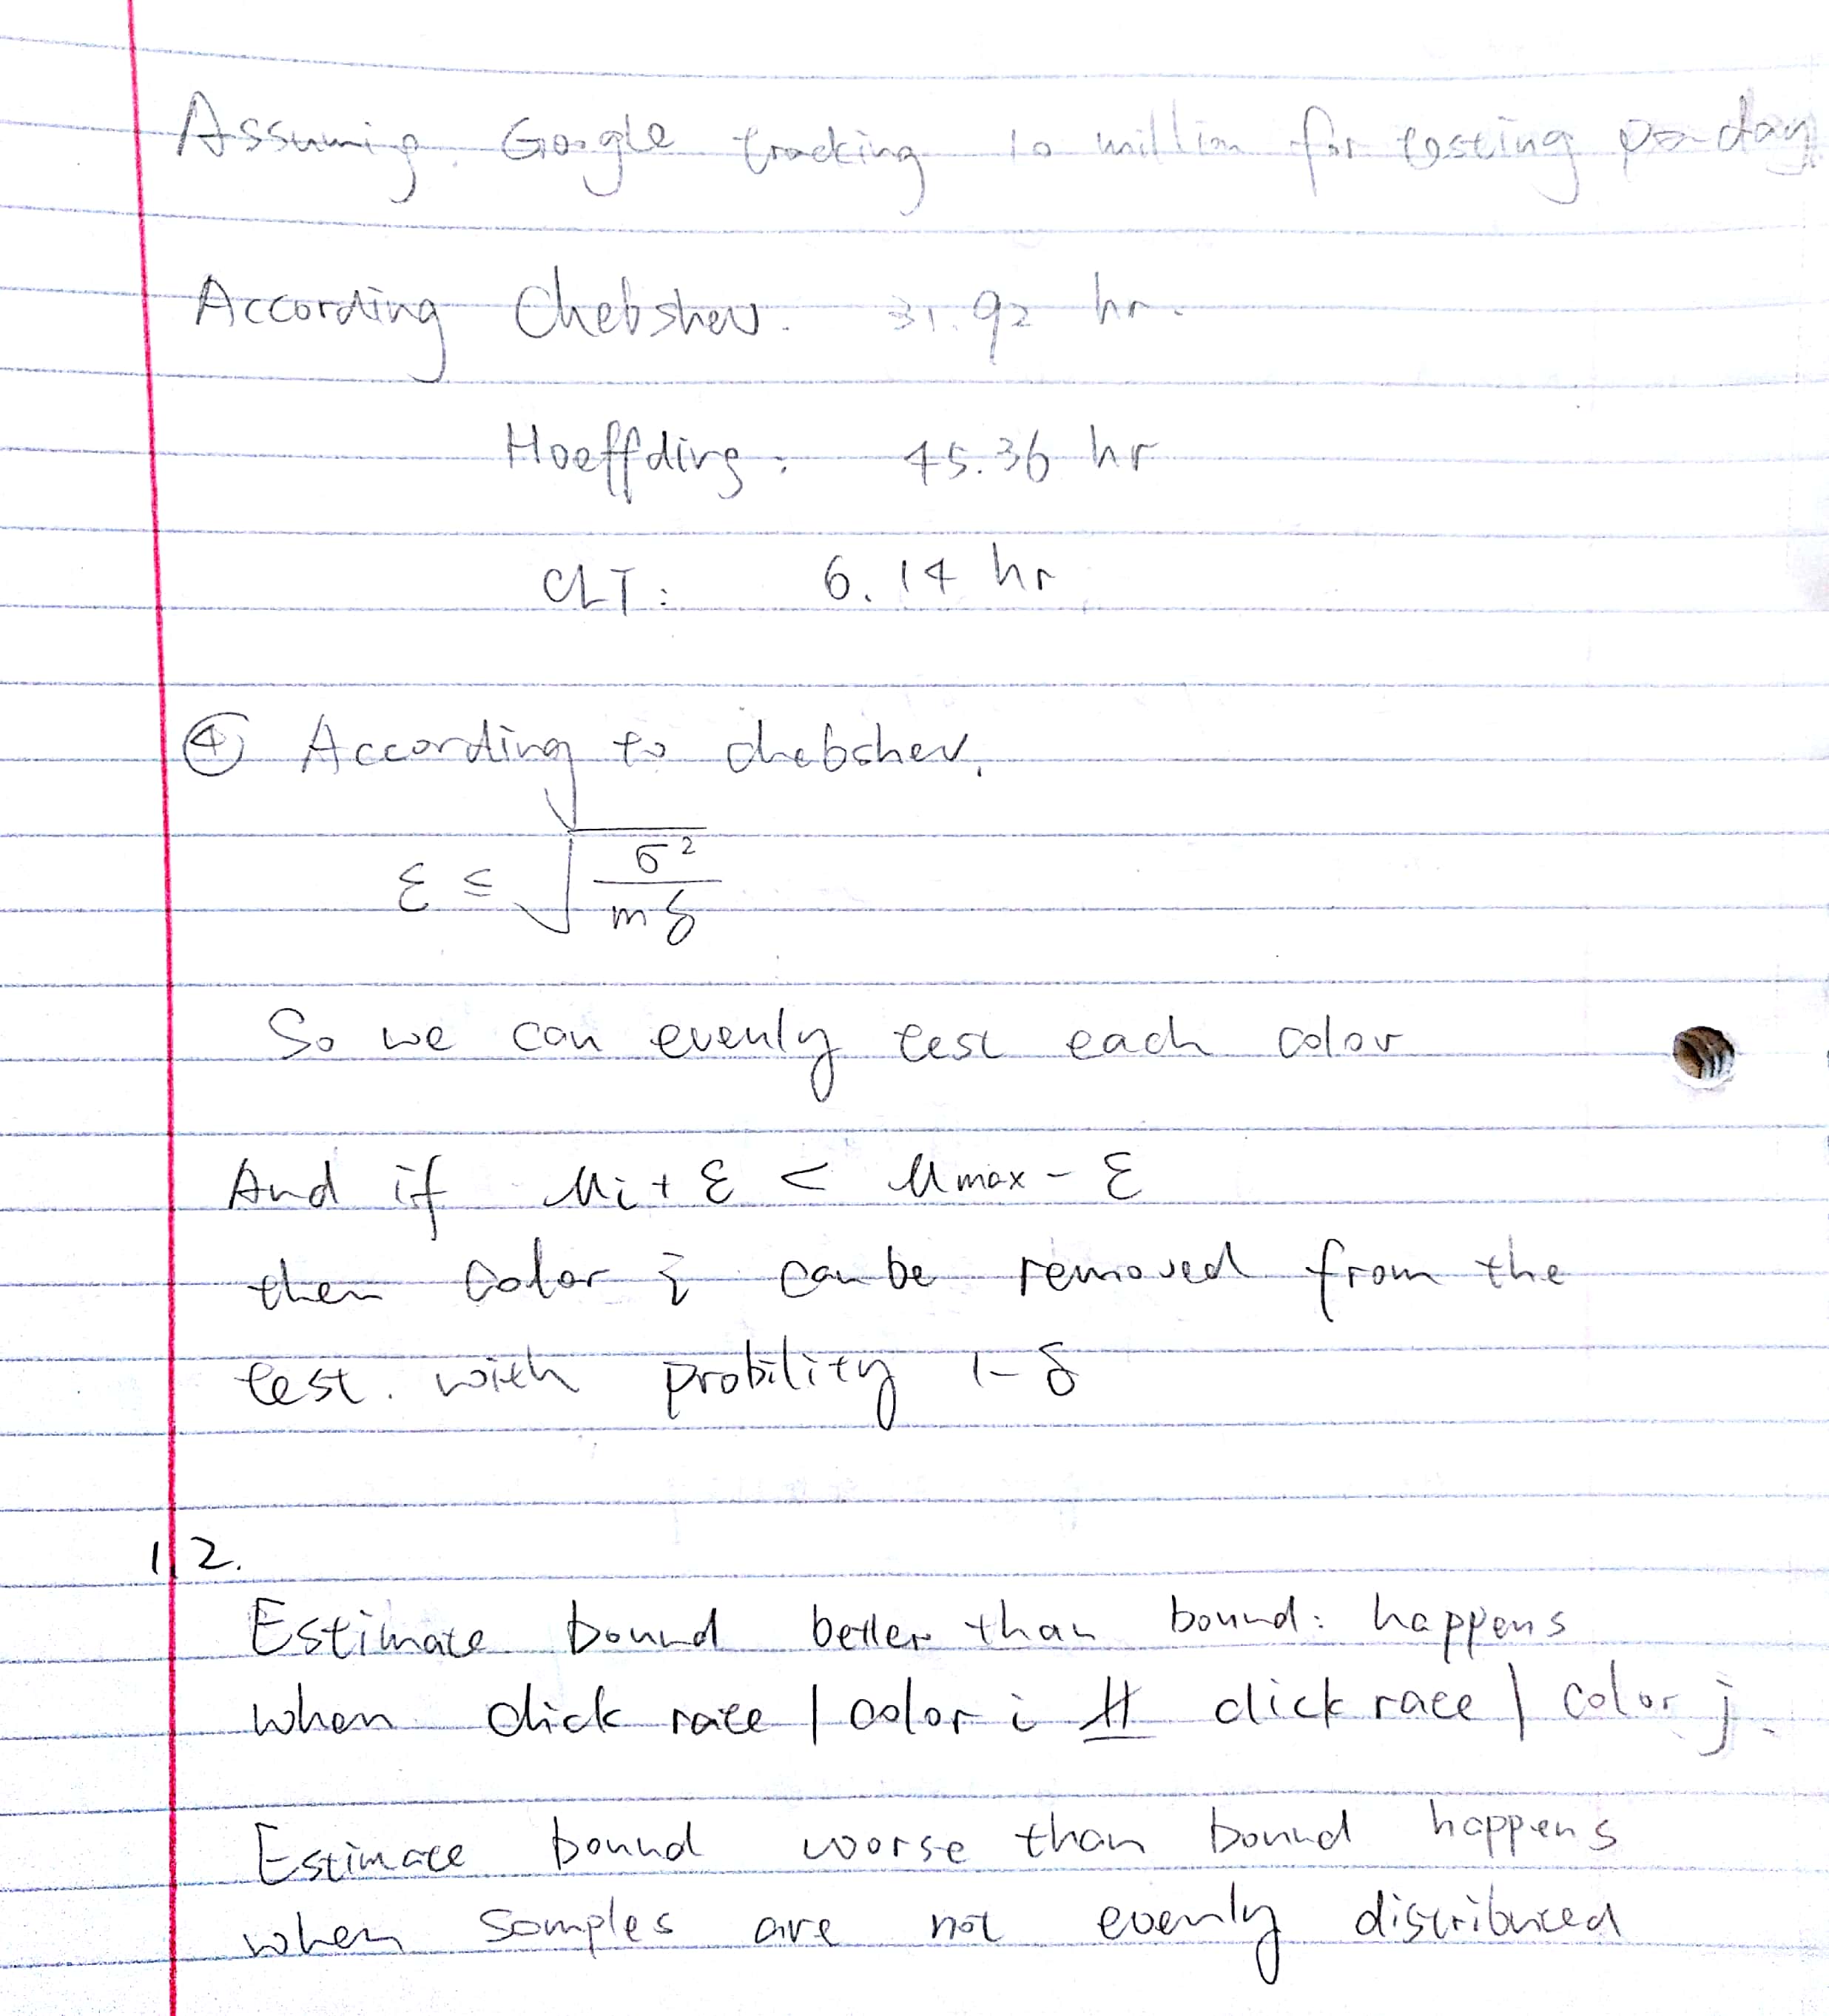 Assuming Google tracking 10 million for testing per day
According Chebshev. 31.92 hr.
Hoeffding: 45.36 hr
CLT: 6.14 hr
④ According to chebshev,
ε ≤ √(σ²/mδ)
So we can evenly test each color
And if μi + ε < μmax - ε
then color i can be removed from the
test. with probility 1-δ
1.2.
Estimate bound better than bound: happens
when click rate | color i ⫫̸ click rate | color j.
Estimate bound worse than bound happens
when samples are not evenly distributed